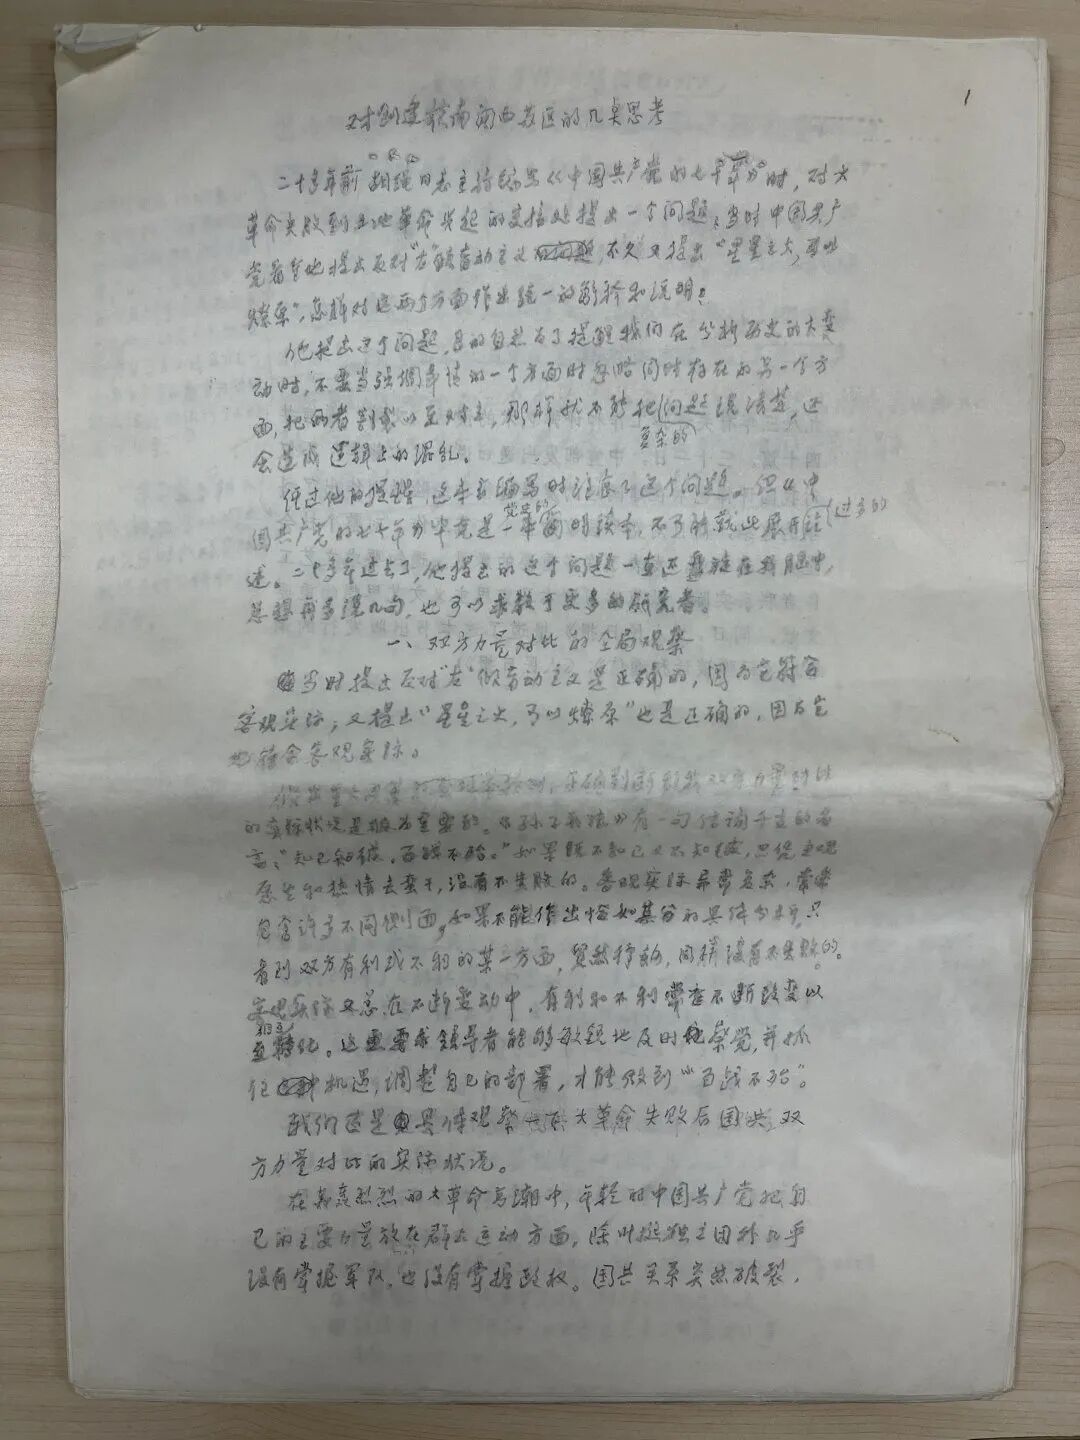 1
对创建赣南闽西苏区的几点思考
二十多年前胡绳同志主持编写《中国共产党的七十年》时，对大
革命失败到土地革命兴起的支接处提出一个问题：当时中国共产
党着重地提出反对“左”倾盲动主义，不久又提出“星星之火，可以
燎原”，怎样对这两个方面作出统一的解释和说明？
他提出这个问题，目的自然为了提醒我们在分析历史的大变
动时，不要当强调事情的一个方面时忽略同时存在的另一个方
面，把两者割裂以至对立，那样就不能把复杂的问题说清楚，还
会造成逻辑上的混乱。
经过他的提醒，这本书编写时注意了这个问题。但《中
国共产党的七十年》毕竟是一本党史的简明读本，不可能就此展开过多的论
述。二十多年过去了，他提出的这个问题一直还盘旋在我脑中，
总想再多说几句，也可以求教于更多的研究者。
一、双方力量对比的全局观察
当时提出反对“左”倾盲动主义是正确的，因为它符合
客观实际；又提出“星星之火，可以燎原”也是正确的，因为它
也符合客观实际。
正确判断敌我双方力量对比
的实际状况是极为重要的。《孙子兵法》有一句传诵千古的名
言：“知己知彼，百战不殆。”如果既不知己又不知彼，只凭主观
愿望和热情去蛮干，没有不失败的。客观实际异常复杂，常常
包含许多不同侧面，如果不能作出恰如其分的具体分析，只
看到双方有利或不利的某一方面，贸然行动，同样没有不失败的。
客观实际又总在不断变动中，有利和不利常在不断改变以
至转化。这更要求领导者能够敏锐地及时地察觉，并抓
住机遇，调整自己的部署，才能做到“百战不殆”。
我们还是具体观察一下大革命失败后国共双
方力量对比的实际状况。
在轰轰烈烈的大革命高潮中，年轻的中国共产党把自
己的主要力量放在群众运动方面，除叶挺独立团外几乎
没有掌握军队，也没有掌握政权。国共关系突然破裂，